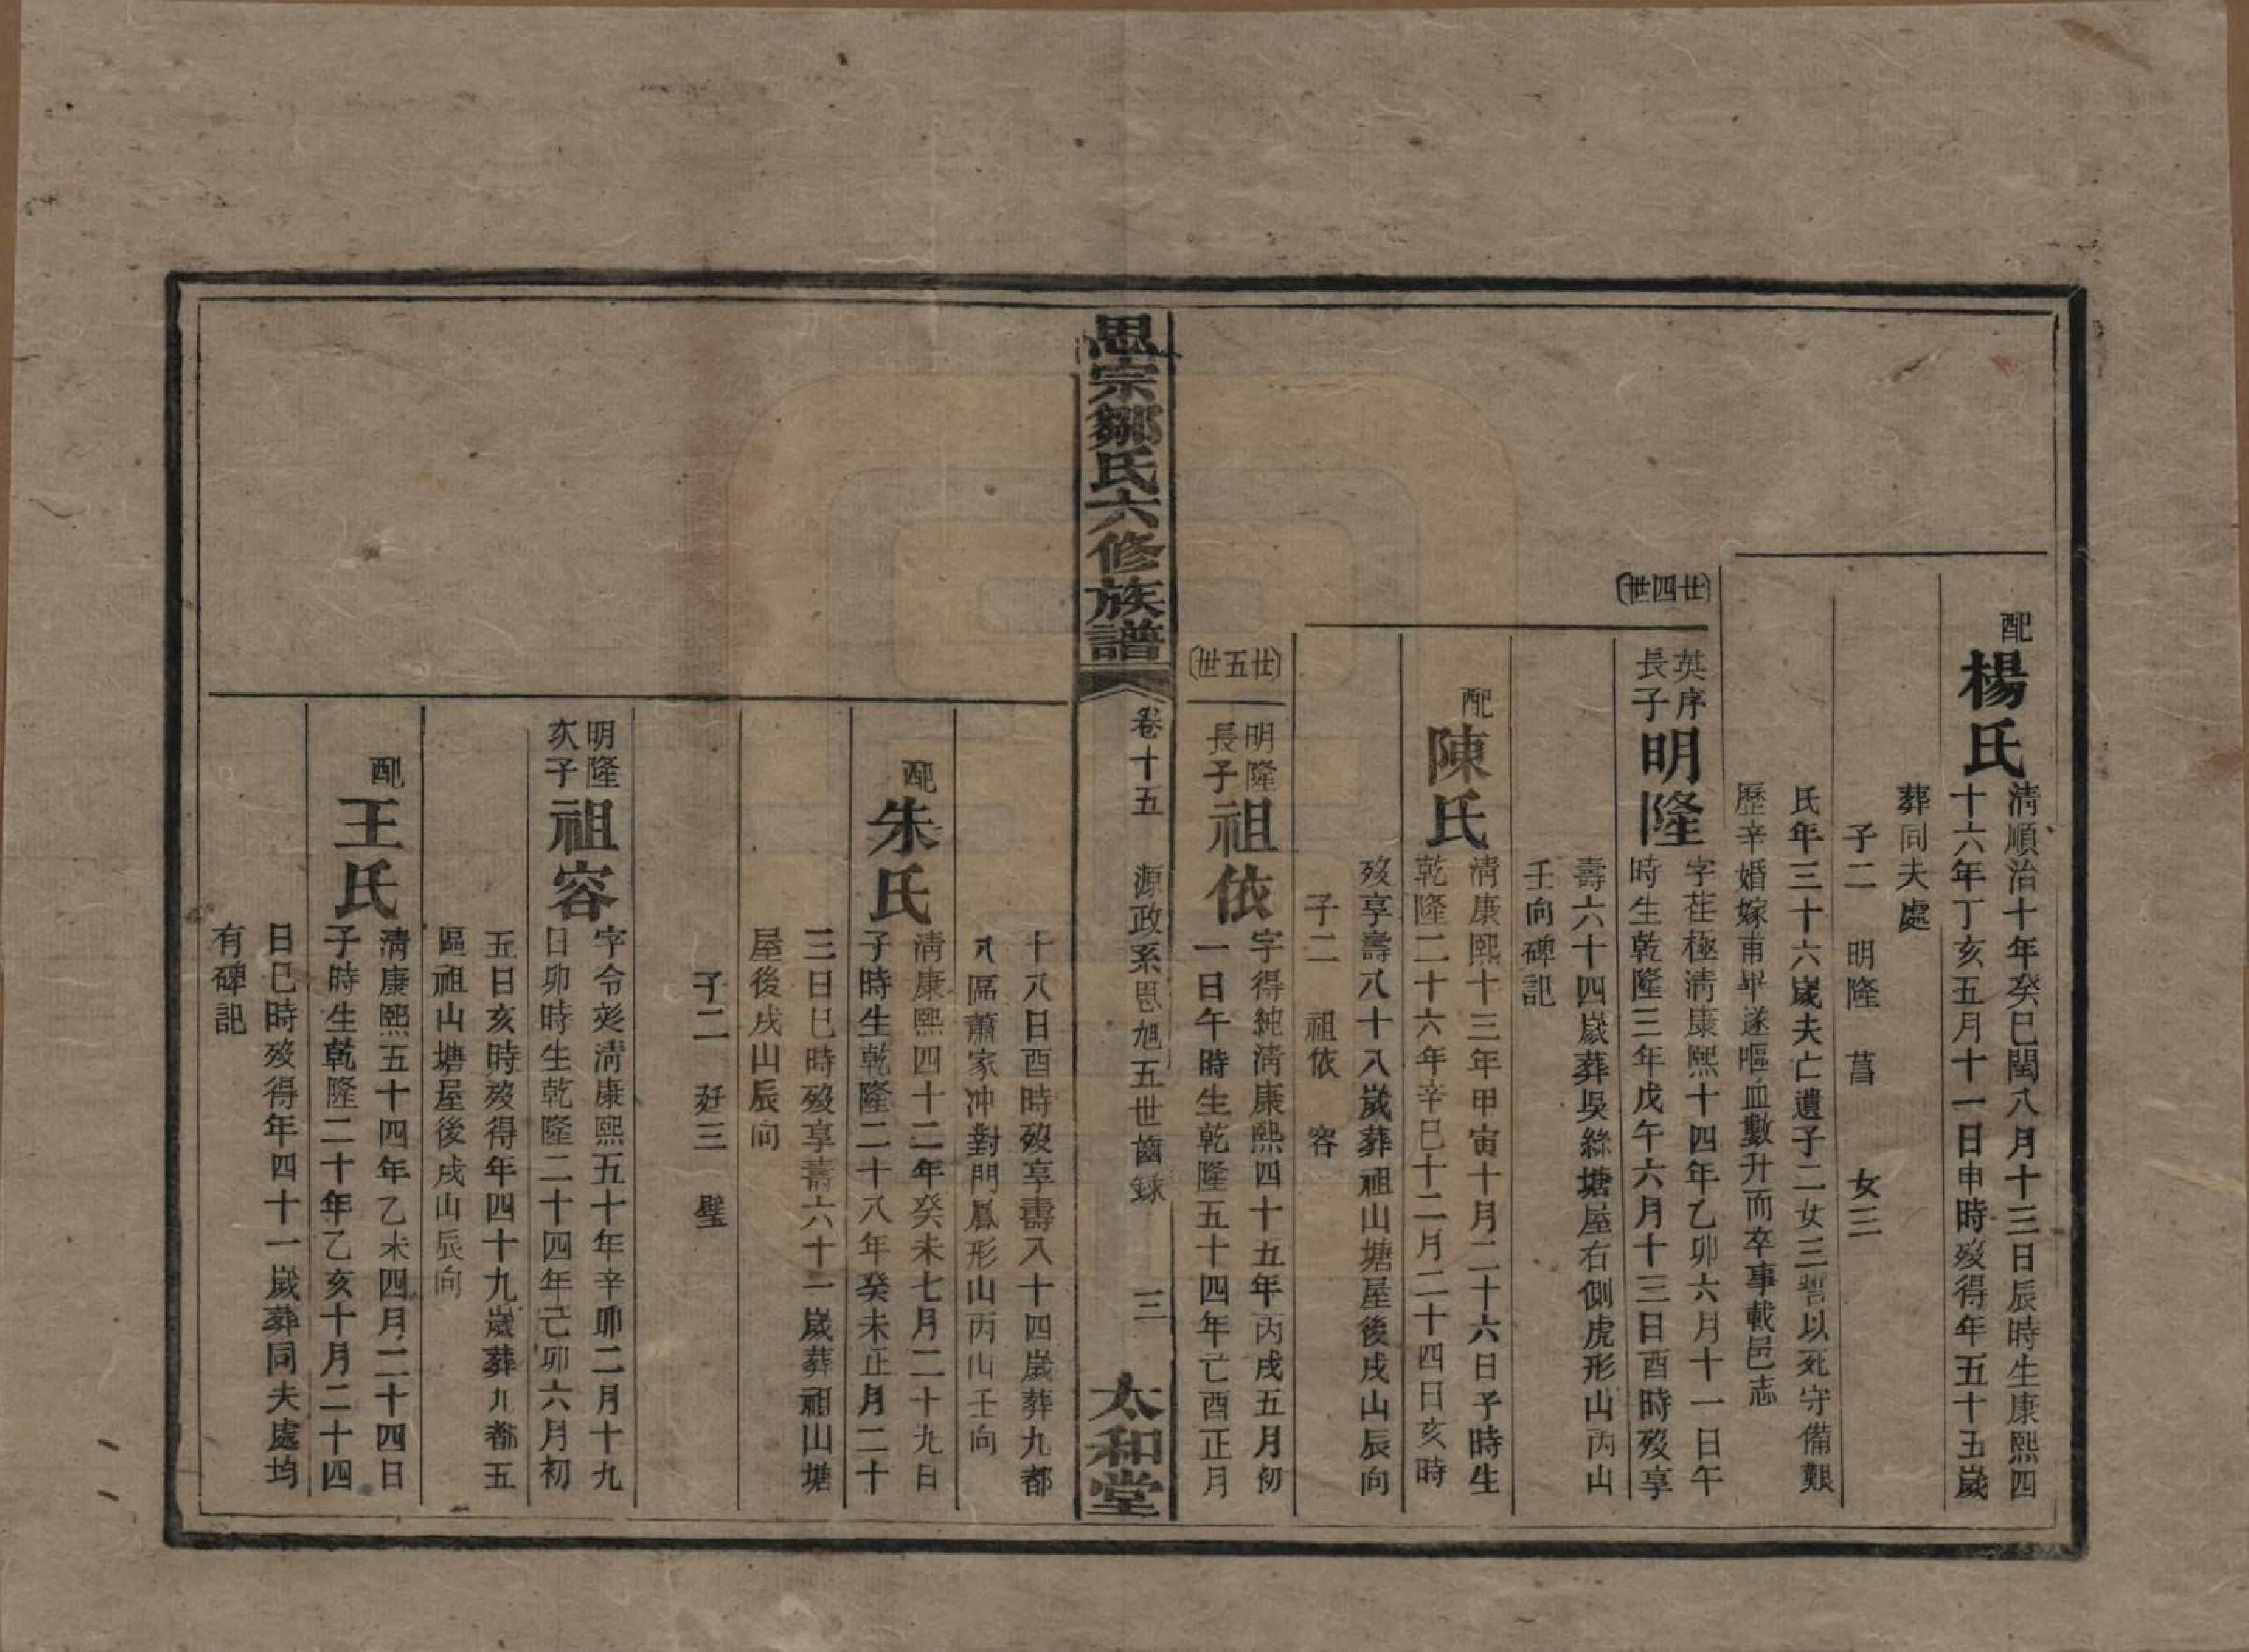 配
楊氏
清順治十年癸巳閏八月十三日辰時生康熙四
十六年丁亥五月十一日申時歿得年五十五歲
葬同夫處
子二 明隆 菖 女三
氏年三十六歲夫亡遺子二女三誓以死守備艱
歷辛婚嫁甫畢遂嘔血數升而卒事載邑志
廿四世
英序
長子
明隆
字荏極清康熙十四年乙卯六月十一日午
時生乾隆三年戊午六月十三日酉時歿享
壽六十四歲葬吳絲塘屋右側虎形山丙山
壬向碑記
配
陳氏
清康熙十三年甲寅十月二十六日子時生
乾隆二十六年辛巳十二月二十四日亥時
歿享壽八十八歲葬祖山塘屋後戌山辰向
子二 祖依 容
廿五世
明隆
長子
祖依
字得純清康熙四十五年丙戌五月初
一日午時生乾隆五十四年己酉正月
思宗鄒氏六修族譜
卷十五 源政系思旭五世齒錄 三
太和堂
十八日酉時歿享壽八十四歲葬九都
八區蕭家冲對門鳳形山丙山壬向
配
朱氏
清康熙四十二年癸未七月二十九日
子時生乾隆二十八年癸未正月二十
三日巳時歿享壽六十一歲葬祖山塘
屋後戌山辰向
子二 廷三 璧
明隆
次子
祖容
字令彣清康熙五十年辛卯二月十九
日卯時生乾隆二十四年己卯六月初
五日亥時歿得年四十九歲葬九都五
區祖山塘屋後戌山辰向
配
王氏
清康熙五十四年乙未四月二十四日
子時生乾隆二十年乙亥十月二十四
日巳時歿得年四十一歲葬同夫處均
有碑記